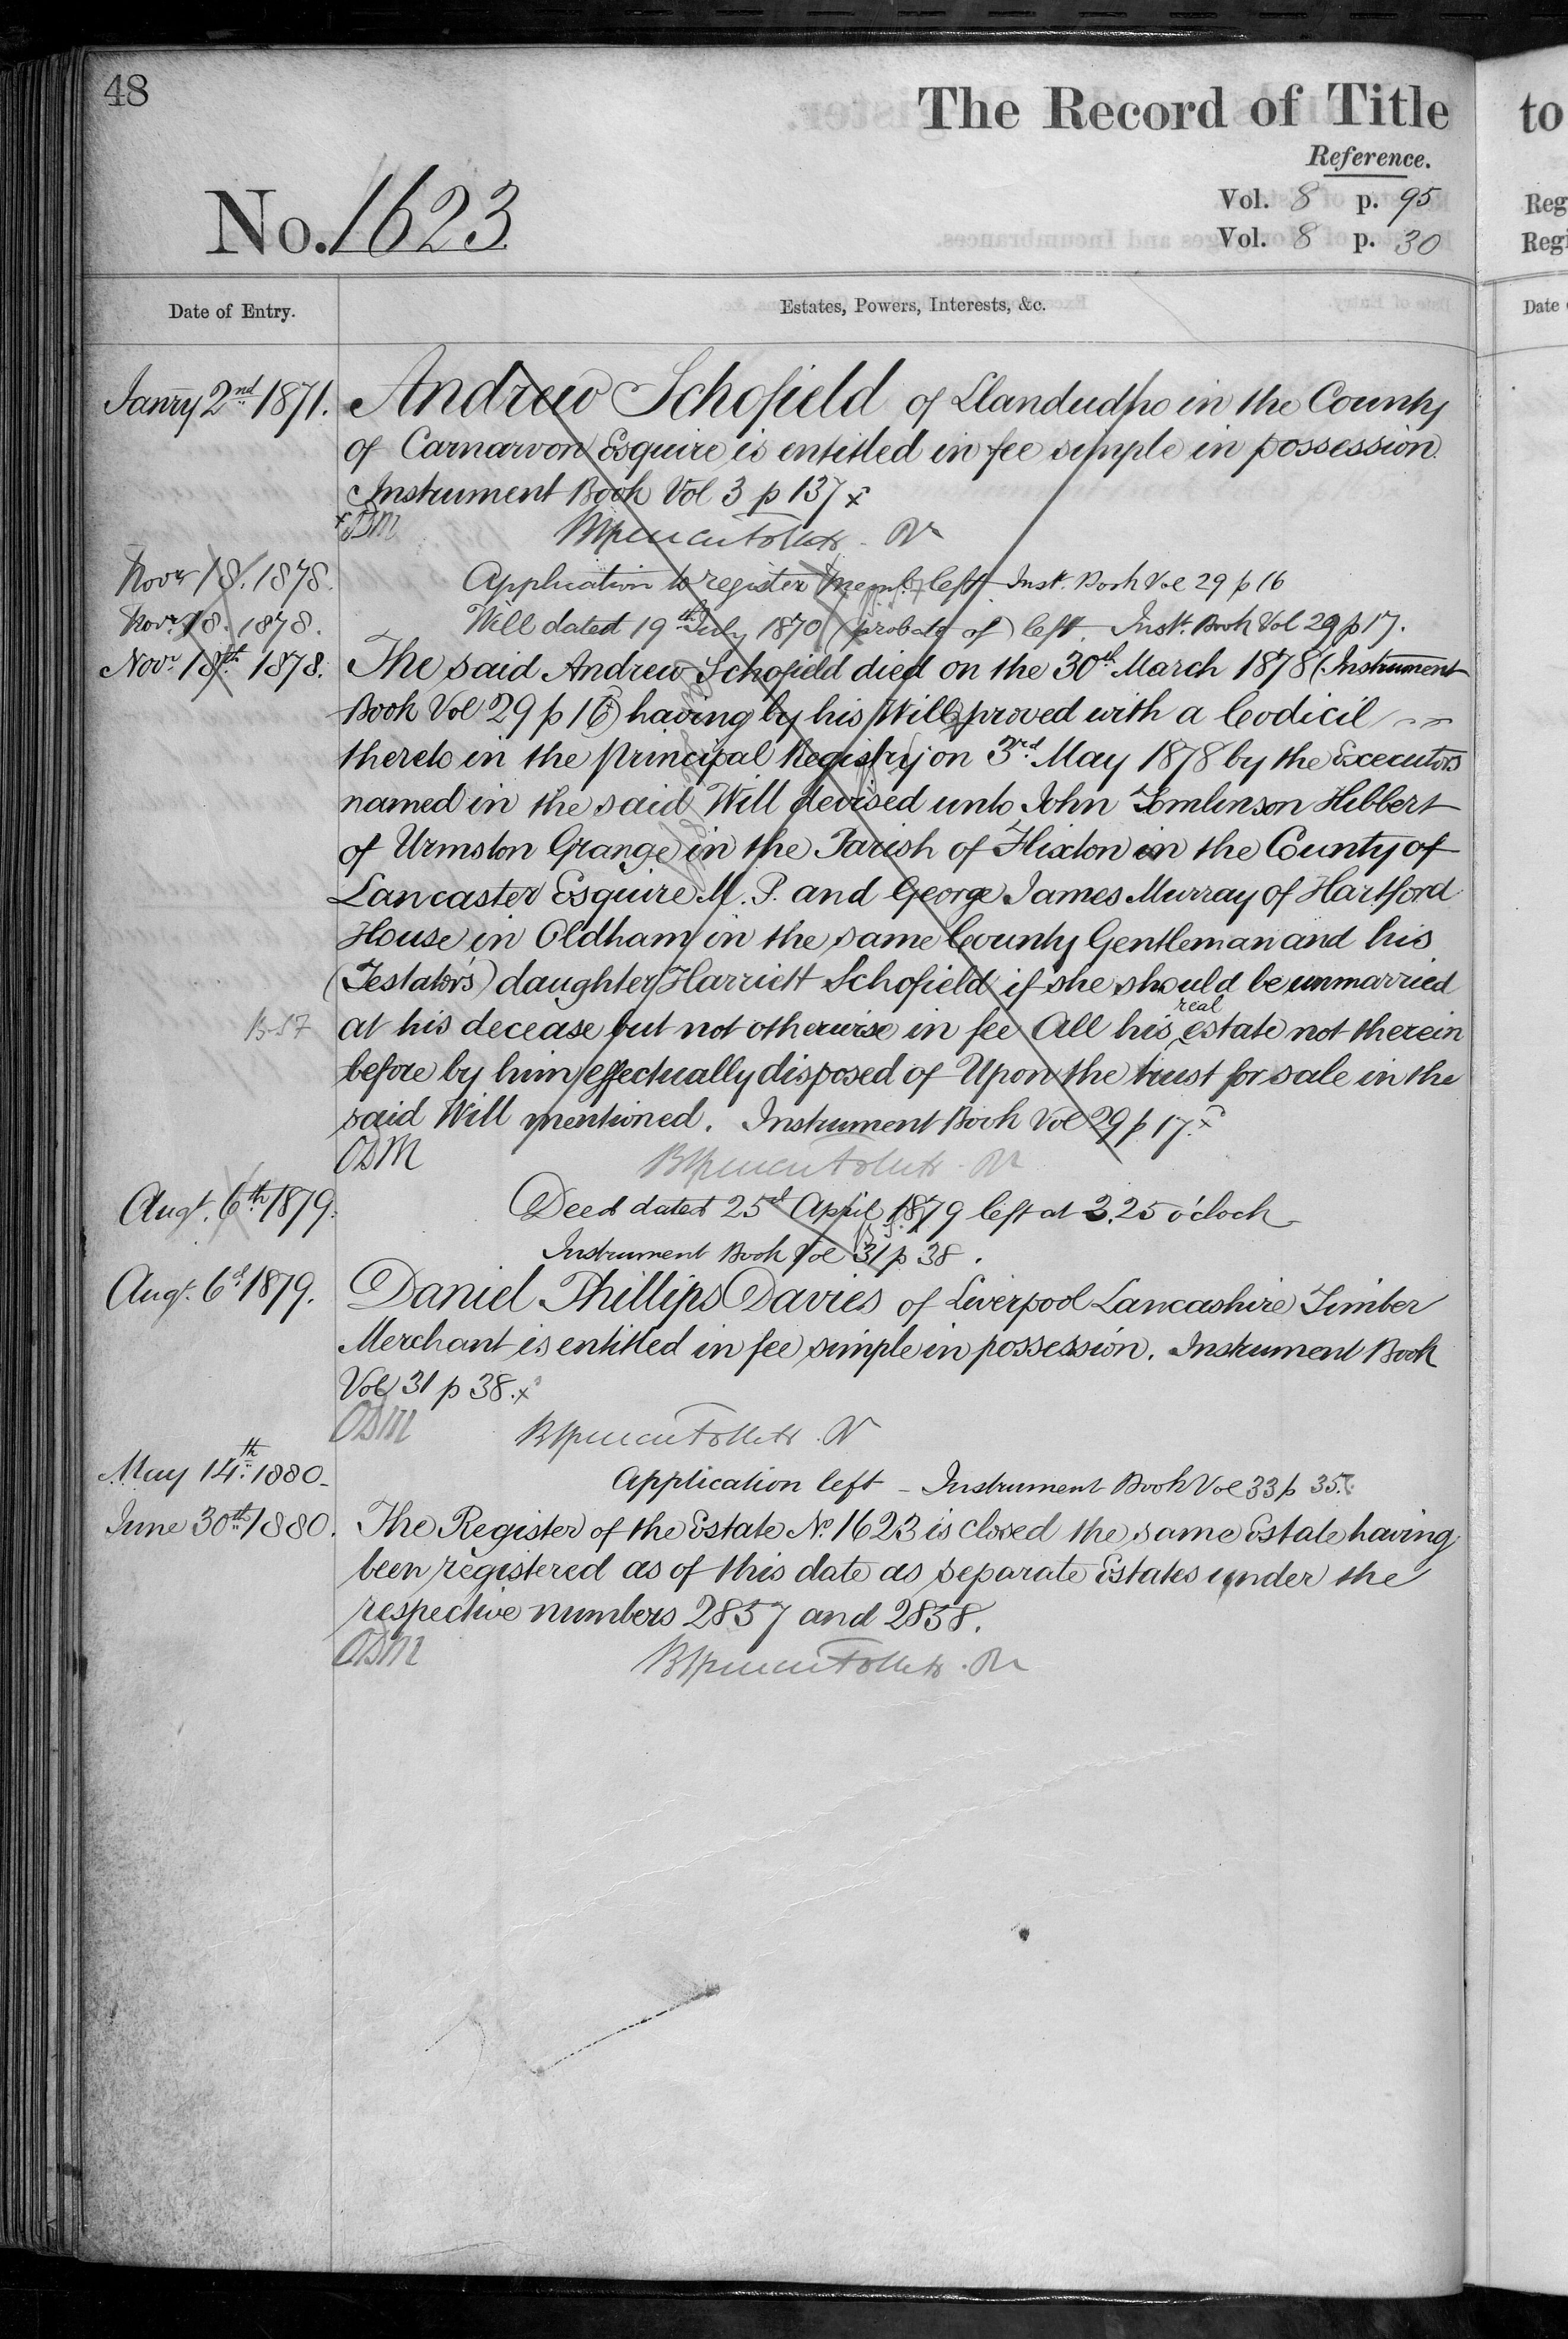 48
The Record of Title
Reference.
Vol. 8 p. 95
Vol. 8 p. 30
No. 1623
Date of Entry.
Estates, Powers, Interests, &c.
Janry 2nd 1871. Andrew Schofield of Llandudno in the County
of Carnarvon Esquire is entitled in fee simple in possession.
Instrument Book Vol 3 p 137 x
Novr 18. 1878. Application to register left Inst. Book Vol 29 p 16
Novr 18. 1878. Will dated 19th July 1870 (probate of) left. Inst. Book Vol 29 p 17.
Novr 18th 1878. The said Andrew Schofield died on the 30th March 1878 (Instrument
Book Vol 29 p 16) having by his Will proved with a Codicil
thereto in the principal Registry on 3rd May 1878 by the Executors
named in the said Will devised unto John Tomlinson Hibbert
of Urmston Grange in the Parish of Flixton in the County of
Lancaster Esquire M. P. and George James Murray of Hartford
House in Oldham in the same County Gentleman and his
(Testator's) daughter Harriett Schofield if she should be unmarried
at his decease but not otherwise in fee All his real estate not therein
before by him effectually disposed of Upon the trust for sale in the
said Will mentioned. Instrument Book Vol 29 p 17. x
ODM
Augt. 6th 1879. Deed dated 25th April 1879 left at 2.25 o'clock
Instrument Book Vol 31 p 38.
Augt. 6th 1879. Daniel Phillips Davies of Liverpool Lancashire Timber
Merchant is entitled in fee simple in possession. Instrument Book
Vol 31 p 38. x
ODM
May 14th 1880. Application left - Instrument Book Vol 33 p 35.
June 30th 1880. The Register of the Estate No. 1623 is closed the same Estate having
been registered as of this date as separate Estates under the
respective numbers 2857 and 2858.
ODM
to
Reg
Regi
Date